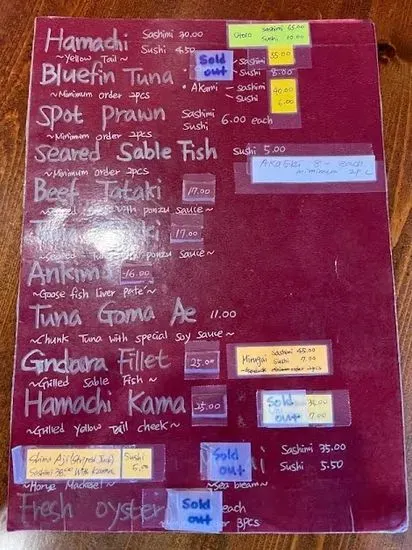 Hamachi Sashimi 30.00
Sushi 4.50
~Yellow Tail~
Otoro Sashimi 65.00
Sushi 10.00
Bluefin Tuna
~Minimum order 2pcs
Sold out
55.00
Sushi 8.00
• Akami Sashimi 40.00
Sushi 6.00
Spot Prawn Sashimi
Sushi 6.00 each
~Minimum order 2pcs
Seared Sable Fish Sushi 5.00
~Minimum order 2pcs
Akaebi 8- each
minimum 2pc
Beef Tataki 17.00
with ponzu sauce~
17.00
ponzu sauce~
Ankimo 16.00
~Goose fish liver pate~
Tuna Goma Ae 11.00
~Chunk Tuna with special soy sauce~
Gindara Fillet 25.00
~Grilled Sable Fish~
Mirugai Sashimi 45.00
Sushi 7.00
Hamachi Kama 25.00
~Grilled Yellow Tail cheek~
Sold out
7.00
Shima Aji (Striped Jack) Sushi
~Horse Mackerel~
Sold out
Sashimi 35.00
Sushi 5.50
~Sea bream~
Fresh Oyster
Sold out
each
3pcs